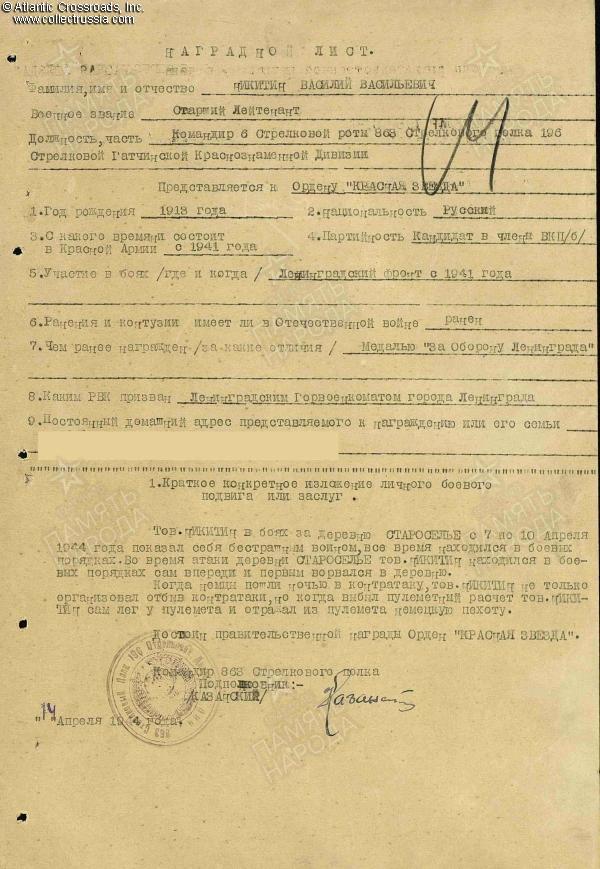 © Atlantic Crossroads, Inc.
www.collectrussia.com
НАГРАДНОЙ ЛИСТ.
Фамилия,имя и отчество НИКИТИН ВАСИЛИЙ ВАСИЛЬЕВИЧ
Военное звание Старший Лейтенант
Должность,часть Командир 6 Стрелковой роты 863 Стрелкового полка 196
Стрелковой Гатчинской Краснознаменной Дивизии
Представляется к Ордену "КРАСНАЯ ЗВЕЗДА"
1.Год рождения 1913 года 2.национальность Русский
3.С какого времяни состоит
в Красной Армии с 1941 года 4.Партийность Кандидат в члены ВКП/б/
5.Участие в боях /где и когда/ Ленинградский фронт с 1941 года
6.Ранения и контузии имеет ли в Отечественной войне ранен
7.Чем ранее награжден /за какие отличия/ Медалью "За Оборону Ленинграда"
8.Каким РВК призван Ленинградским Горвоенкоматом города Ленинграда
9.Постоянный домашний адрес представляемого к награждению или его семьи
1.Краткое конкретное изложение личного боевого
подвига или заслуг.
Тов.НИКИТИН в боях за деревню СТАРОСЕЛЬЕ с 7 по 10 Апреля
1944 года показал себя бестрашным воином,все время находился в боевых
порядках.Во время атаки деревни СТАРОСЕЛЬЕ тов.НИКИТИН находился в бое-
вых порядках сам впереди и первым ворвался в деревню.
Когда немцы пошли ночью в контратаку,тов.НИКИТИН не только
организовал отбив контратаки,но когда выбыл пулеметный расчет тов.НИКИ-
ТИН сам лег у пулемета и отражал из пулемета немецкую пехоту.
Достоин правительственной награды Орден "КРАСНАЯ ЗВЕЗДА".
Командир 863 Стрелкового полка
Подполковник:-
/КАЗАНСКИЙ/
"14" Апреля 1944 года.
ПАМЯТЬ
НАРОДА